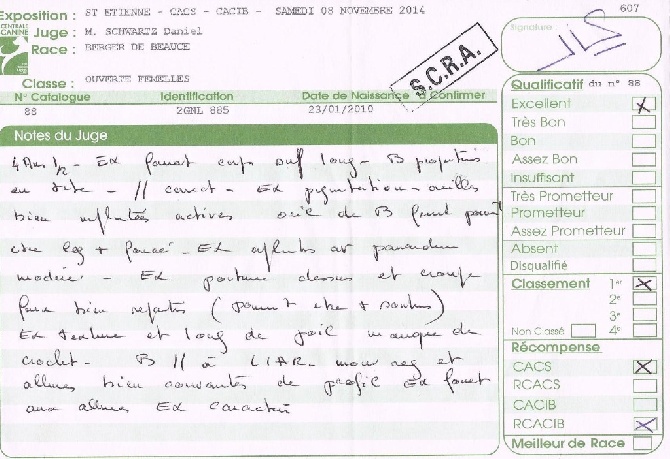 607
Exposition : ST ETIENNE - CACS - CACIB - SAMEDI 08 NOVEMBRE 2014
CENTRALE CANINE
Juge : M. SCHWARTZ Daniel
Race : BERGER DE BEAUCE
Classe : OUVERTE FEMELLES
S.C.R.A.
Signature
N° Catalogue Identification Date de Naissance à Confirmer
88 2GNL 885 23/01/2010
Notes du Juge
4 Ans 1/2 - Ex format corps suf long - B proportions
en tete - // correct - Ex pigmentation - oreilles
bien actives oeil de B
etre leg + foncé - Ex aplombs av
modéré - Ex dessus et croupe
bien
Ex texture et long de poil manque de
crochet - B // à L'AR - mouv reg et
allures bien couvrantes de profil Ex fouet
aux allures Ex caractère
Qualificatif du n° 88
Excellent X
Très Bon
Bon
Assez Bon
Insuffisant
Très Prometteur
Prometteur
Assez Prometteur
Absent
Disqualifié
Classement 1er X
2e
3e
Non Classé 4e
Récompense
CACS X
RCACS
CACIB
RCACIB X
Meilleur de Race